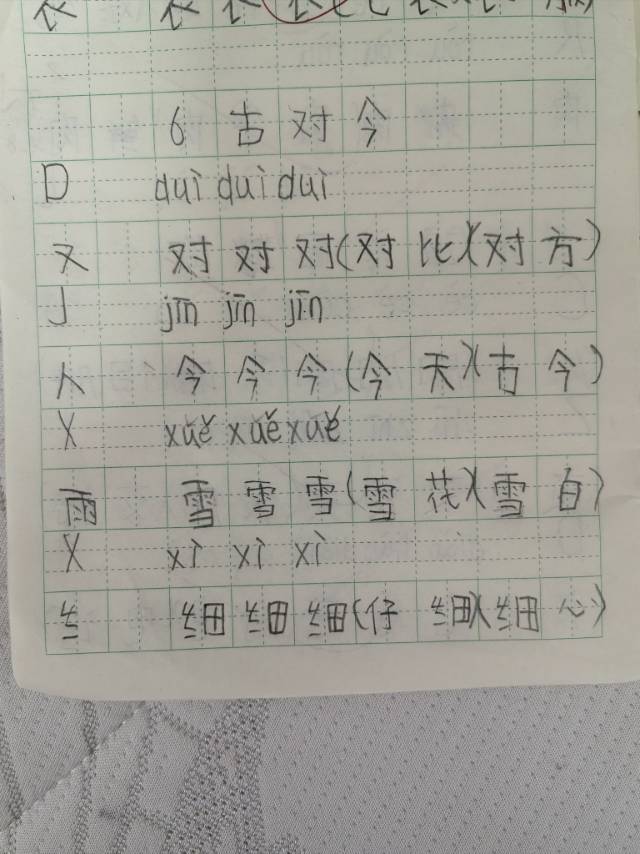 6 古对今
D duì duì duì
又 对 对 对(对比)(对方)
J jīn jīn jīn
人 今 今 今(今天)(古今)
X xuě xuě xuě
雨 雪 雪 雪(雪花)(雪白)
X xì xì xì
纟 细 细 细(仔细)(细心)